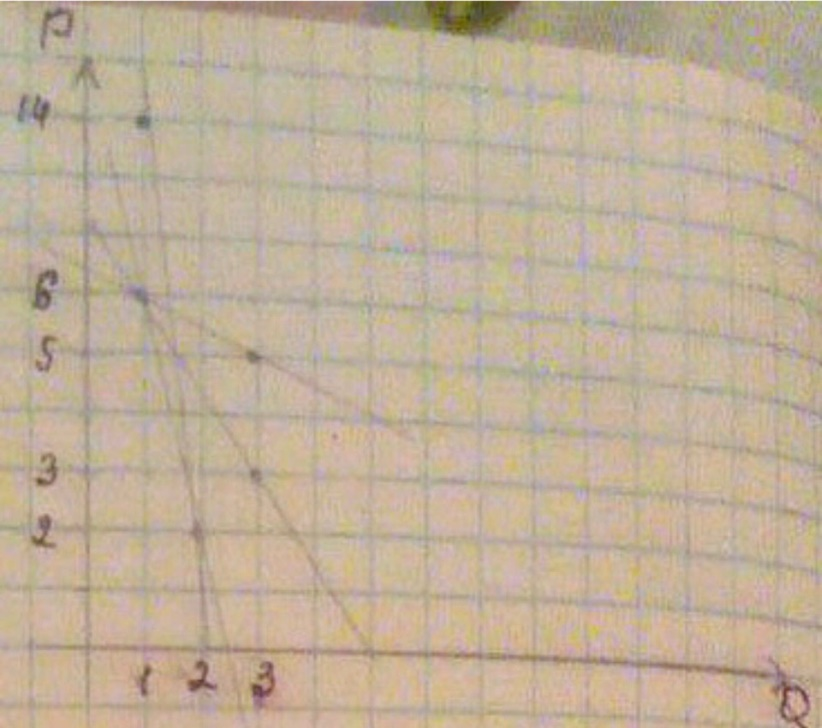 P
14
6
5
3
2
1 2 3
Q